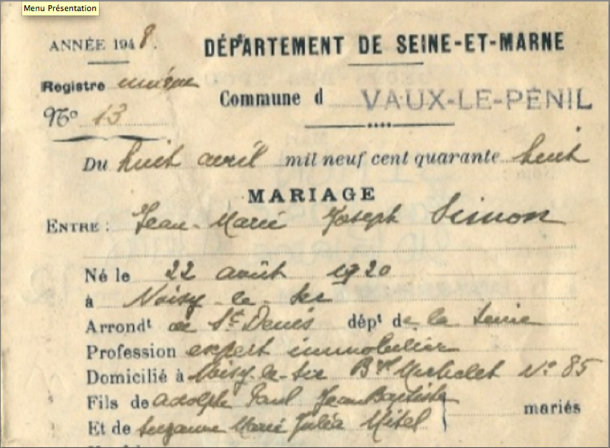 Menu Présentation
ANNÉE 1948.
DÉPARTEMENT DE SEINE-ET-MARNE
Registre unique
Commune d VAUX-LE-PENIL
No 13
Du huit avril mil neuf cent quarante huit
MARIAGE
ENTRE : Jean-Marie Joseph Simon
Né le 22 août 1920
à Noisy-le-Sec
Arrondt de St Denis dépt de la Seine
Profession expert immobilier
Domicilié à Noisy-le-Sec Bd No 85
Fils de Adolphe Paul Jean Baptiste
mariés
Et de Suzanne Marie Julia Mitel